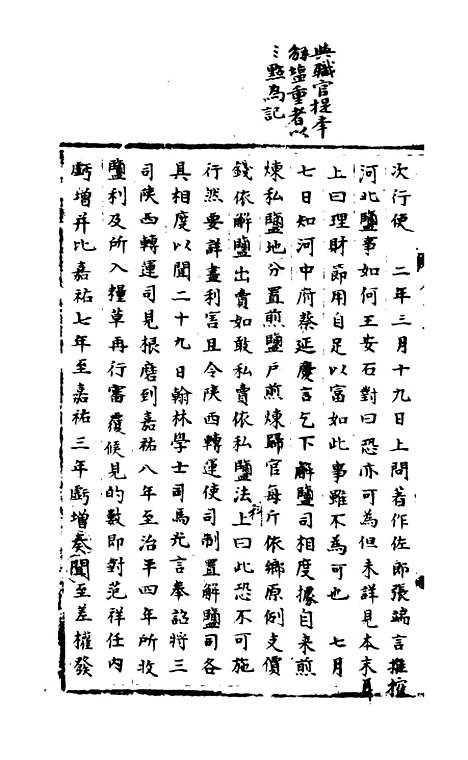 與職官提本
餘塩重者以
三點為記
次行使　二年三月十九日上問著作佐郎張端言推搉
河北鹽事如何王安石對曰恐亦可為但未詳見本末耳
上曰理財節用自足以富如此事雖不為可也　七月
七日知河中府蔡延慶言乞下解鹽司相度據自来煎
煉私鹽地分置煎鹽戶煎煉歸官每斤依鄉原例支價
錢依解鹽出賣如敢私賣依私鹽法科上曰此恐不可施
行然要詳盡利害且令陝西轉運使司制置解鹽司各
具相度以聞二十九日翰林學士司馬光言奉詔將三
司陝西轉運司見根磨到嘉祐八年至治平四年所收
鹽利及所入糧草再行審覆候見的數即對范祥任內
虧增并比嘉祐七年至嘉祐三年虧增奏聞至差權發